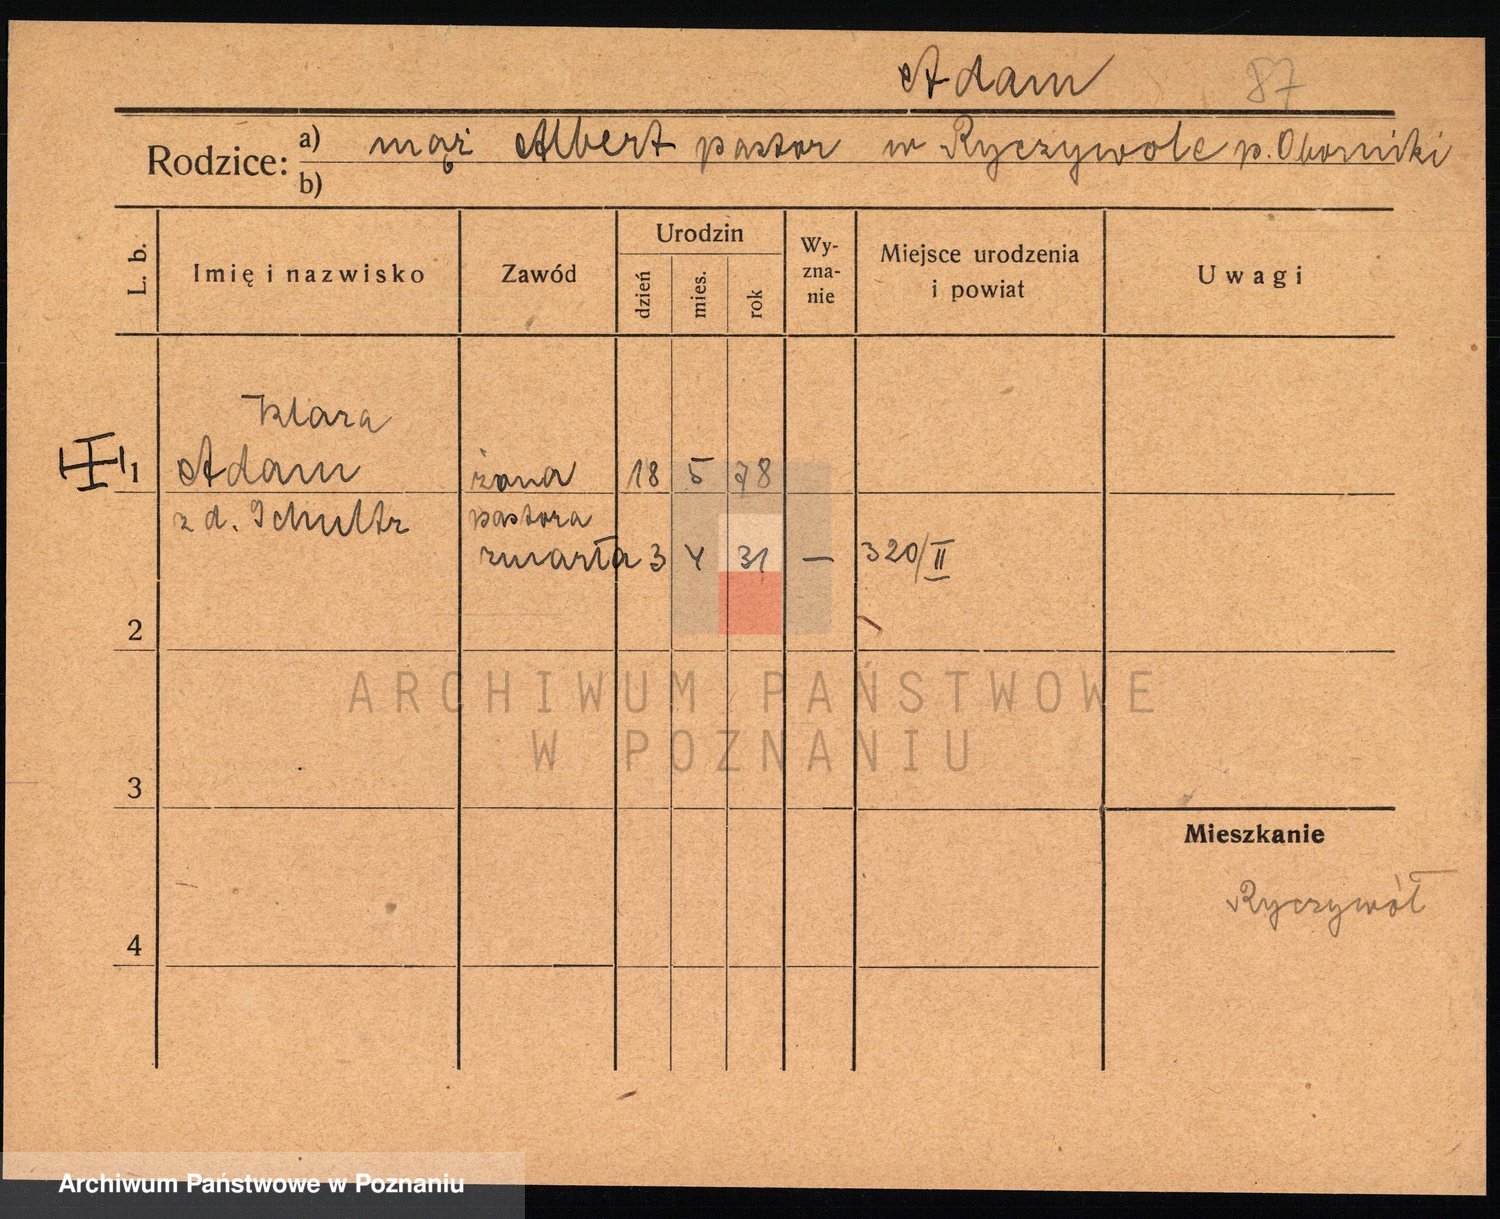 Adam 87
Rodzice: a) mąż Albert pastor w Ryczywole p. Oborniki
b)
L. b.
Imię i nazwisko
Zawód
Urodzin
dzień
mies.
rok
Wy-
zna-
nie
Miejsce urodzenia
i powiat
Uwagi
Klara
1 Adam żona 18 5 78
z d. Schultz pastora
zmarła 3 4 31 — 320/II
2
ARCHIWUM PAŃSTWOWE
W POZNANIU
3
Mieszkanie
Ryczywół
4
Archiwum Państwowe w Poznaniu